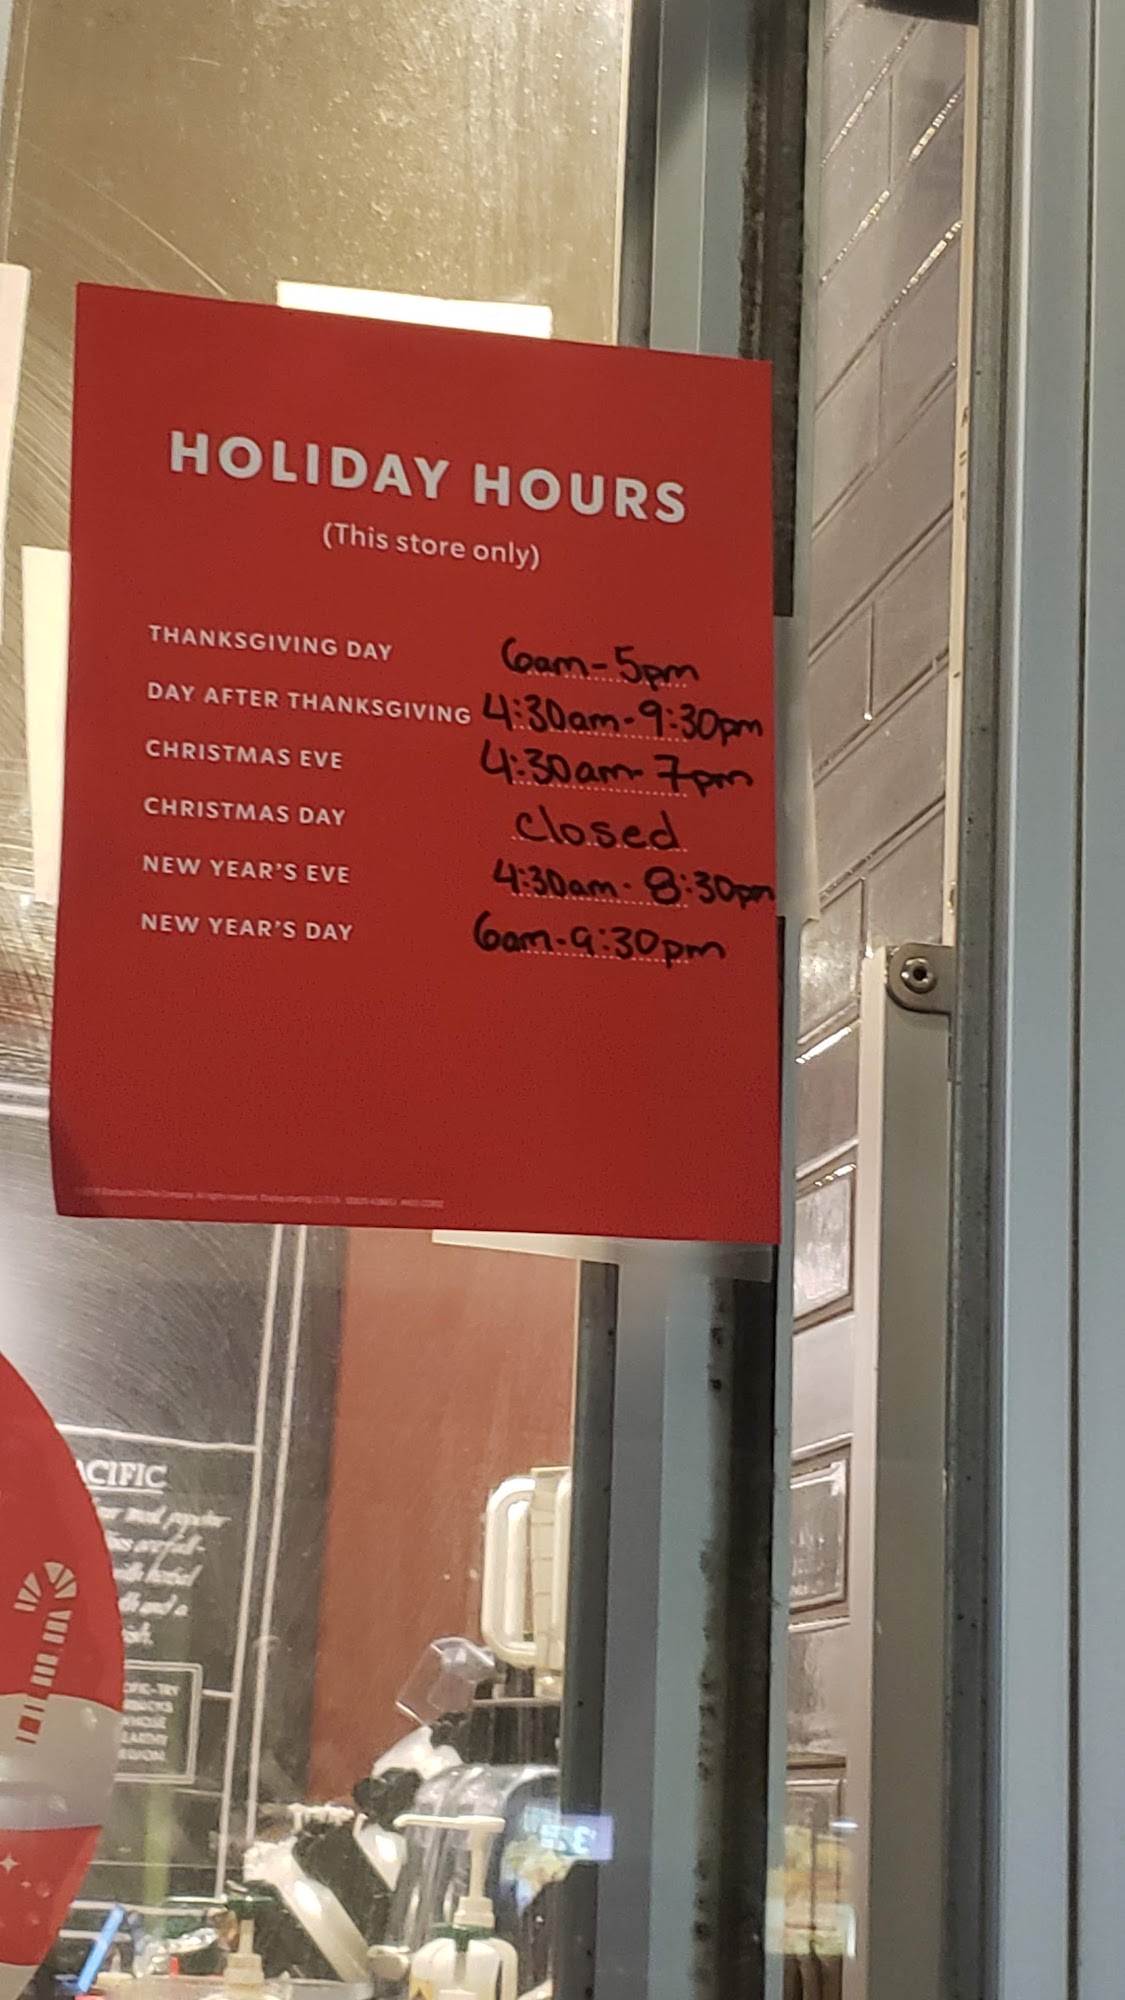 HOLIDAY HOURS
(This store only)
THANKSGIVING DAY 6am-5pm
DAY AFTER THANKSGIVING 4:30am-9:30pm
CHRISTMAS EVE 4:30am-7pm
CHRISTMAS DAY closed
NEW YEAR'S EVE 4:30am-8:30pm
NEW YEAR'S DAY 6am-9:30pm
ACIFIC
most popular